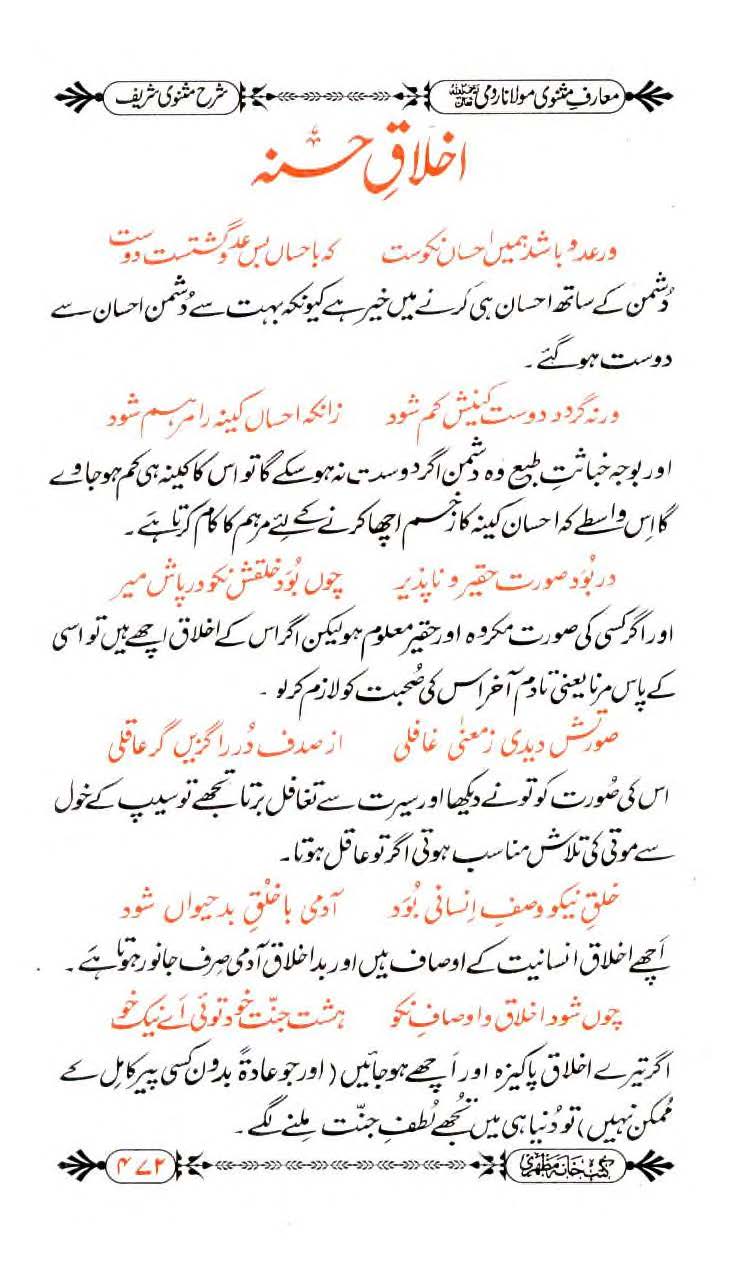 معارفِ مثنوی مولانا رومی رحمۃ اللہ تعالیٰ علیہ شرح مثنوی شریف
اخلاقِ حسنہ
ور عدو باشد ہمیں احسان نکوست که باحساں بس عدو گشتست دوست
دُشمن کے ساتھ احسان ہی کرنے میں خیر ہے کیونکہ بہت سے دُشمن احسان سے
دوست ہوگئے ۔
ور نہ گردد دوست کینش کم شود زانکہ احساں کینہ را مرہم شود
اور بوجہ خباثتِ طبع وہ دشمن اگر دوست نہ ہوسکے گا تو اس کا کینہ ہی کم ہوجاوے
گا اِس واسطے کہ احسان کینہ کا زخم اچھا کرنے کے لئے مرہم کا کام کرتا ہے ۔
در بُوَد صورت حقیر و ناپذیر چوں بُوَد خلقش نکو در پاش میر
اور اگر کسی کی صورت مکروہ اور حقیر معلوم ہو لیکن اگر اس کے اخلاق اچھے ہیں تو اسی
کے پاس مرنا یعنی تادم آخر اس کی صُحبت کو لازم کرلو ۔
صورتش دیدی ز معنٰی غافلی از صدف دُر را گزیں گر عاقلی
اس کی صُورت کو تو نے دیکھا اور سیرت سے تغافل برتا تجھے تو سیپ کے خول
سے موتی کی تلاش مناسب ہوتی اگر تو عاقل ہوتا ۔
خلقِ نیکو وصفِ اِنسانی بُوَد آدمی با خلْقِ بد حیواں شود
اَچھے اخلاق انسانیت کے اوصاف ہیں اور بد اخلاق آدمی صِرف جانور ہوتا ہے ۔
چوں شود اخلاق و اوصافِ نکو ہشت جنّت خود توئی اَے نیک خو
اگر تیرے اخلاق پاکیزہ اور اَچھے ہوجائیں ( اور جو عادۃً بدون کسی پیر کامِل کے
مُمکن نہیں ) تو دُنیا ہی میں تُجھے لُطفِ جنّت مِلنے لگے ۔
کتب خانہ مظہری ۴۷۲